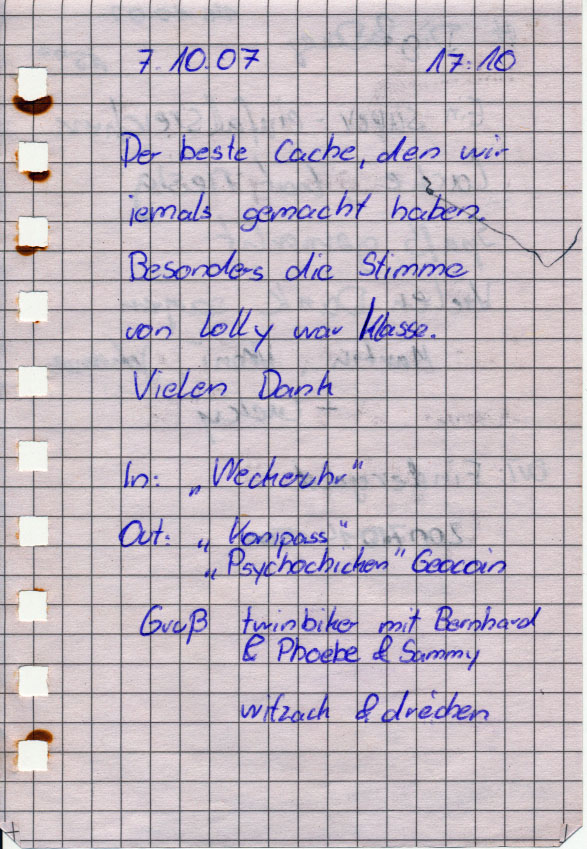 7.10.07 17:10
Der beste Cache, den wir
jemals gemacht haben.
Besonders die Stimme
von Lolly war klasse.
Vielen Dank
In: „Weckeruhr“
Out: „Kompass“
„Psychochicken“ Geocoin
Gruß twinbiker mit Bernhard
& Phoebe & Sammy
witzach & drèchen